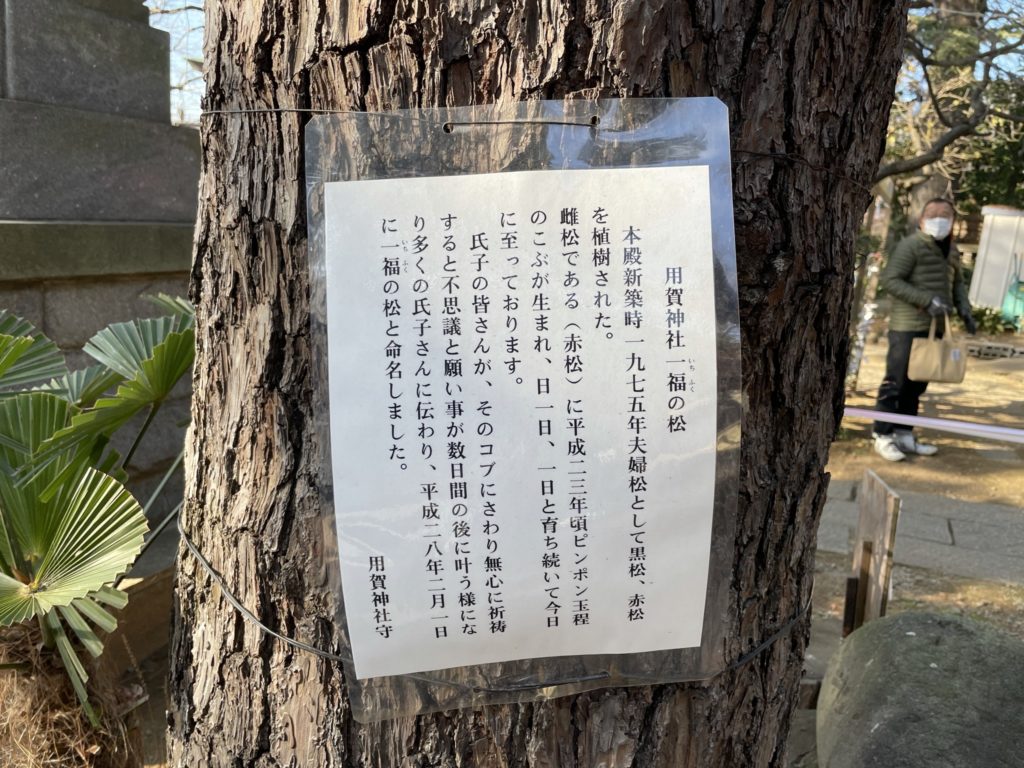 用賀神社一福の松
いちふく
本殿新築時一九七五年夫婦松として黒松、赤松
を植樹された。
雌松である（赤松）に平成二三年頃ピンポン玉程
のこぶが生まれ、日一日、一日と育ち続いて今日
に至っております。
氏子の皆さんが、そのコブにさわり無心に祈祷
すると不思議と願い事が数日間の後に叶う様にな
り多くの氏子さんに伝わり、平成二八年二月一日
に一福の松と命名しました。
いちふく
用賀神社守